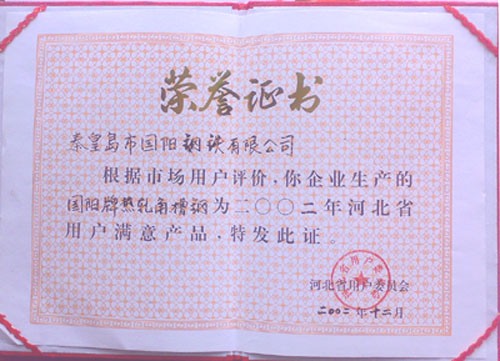 荣誉证书
秦皇岛市国阳钢铁有限公司
根据市场用户评价,你企业生产的
国阳牌热轧角槽钢为二〇〇二年河北省
用户满意产品,特发此证。
河北省用户委员会
二〇〇二年十二月